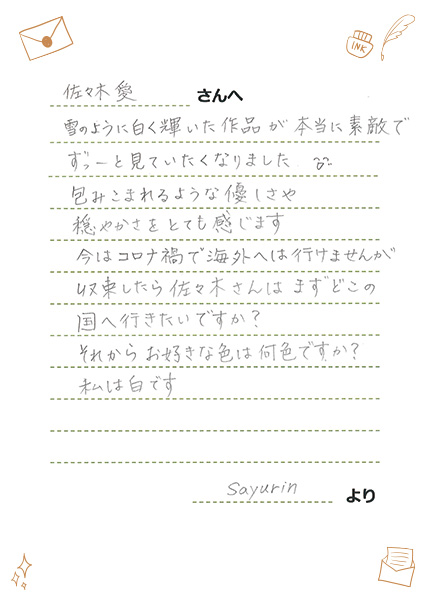 INK
佐々木 愛 さんへ
雪のように白く輝いた作品が本当に素敵で
ずぅーと見ていたくなりました
包みこまれるような優しさや
穏やかさをとても感じます
今はコロナ禍で海外へは行けませんが
収束したら佐々木さんは まずどこの
国へ行きたいですか?
それから お好きな色は何色ですか?
私は白です
Sayurin より